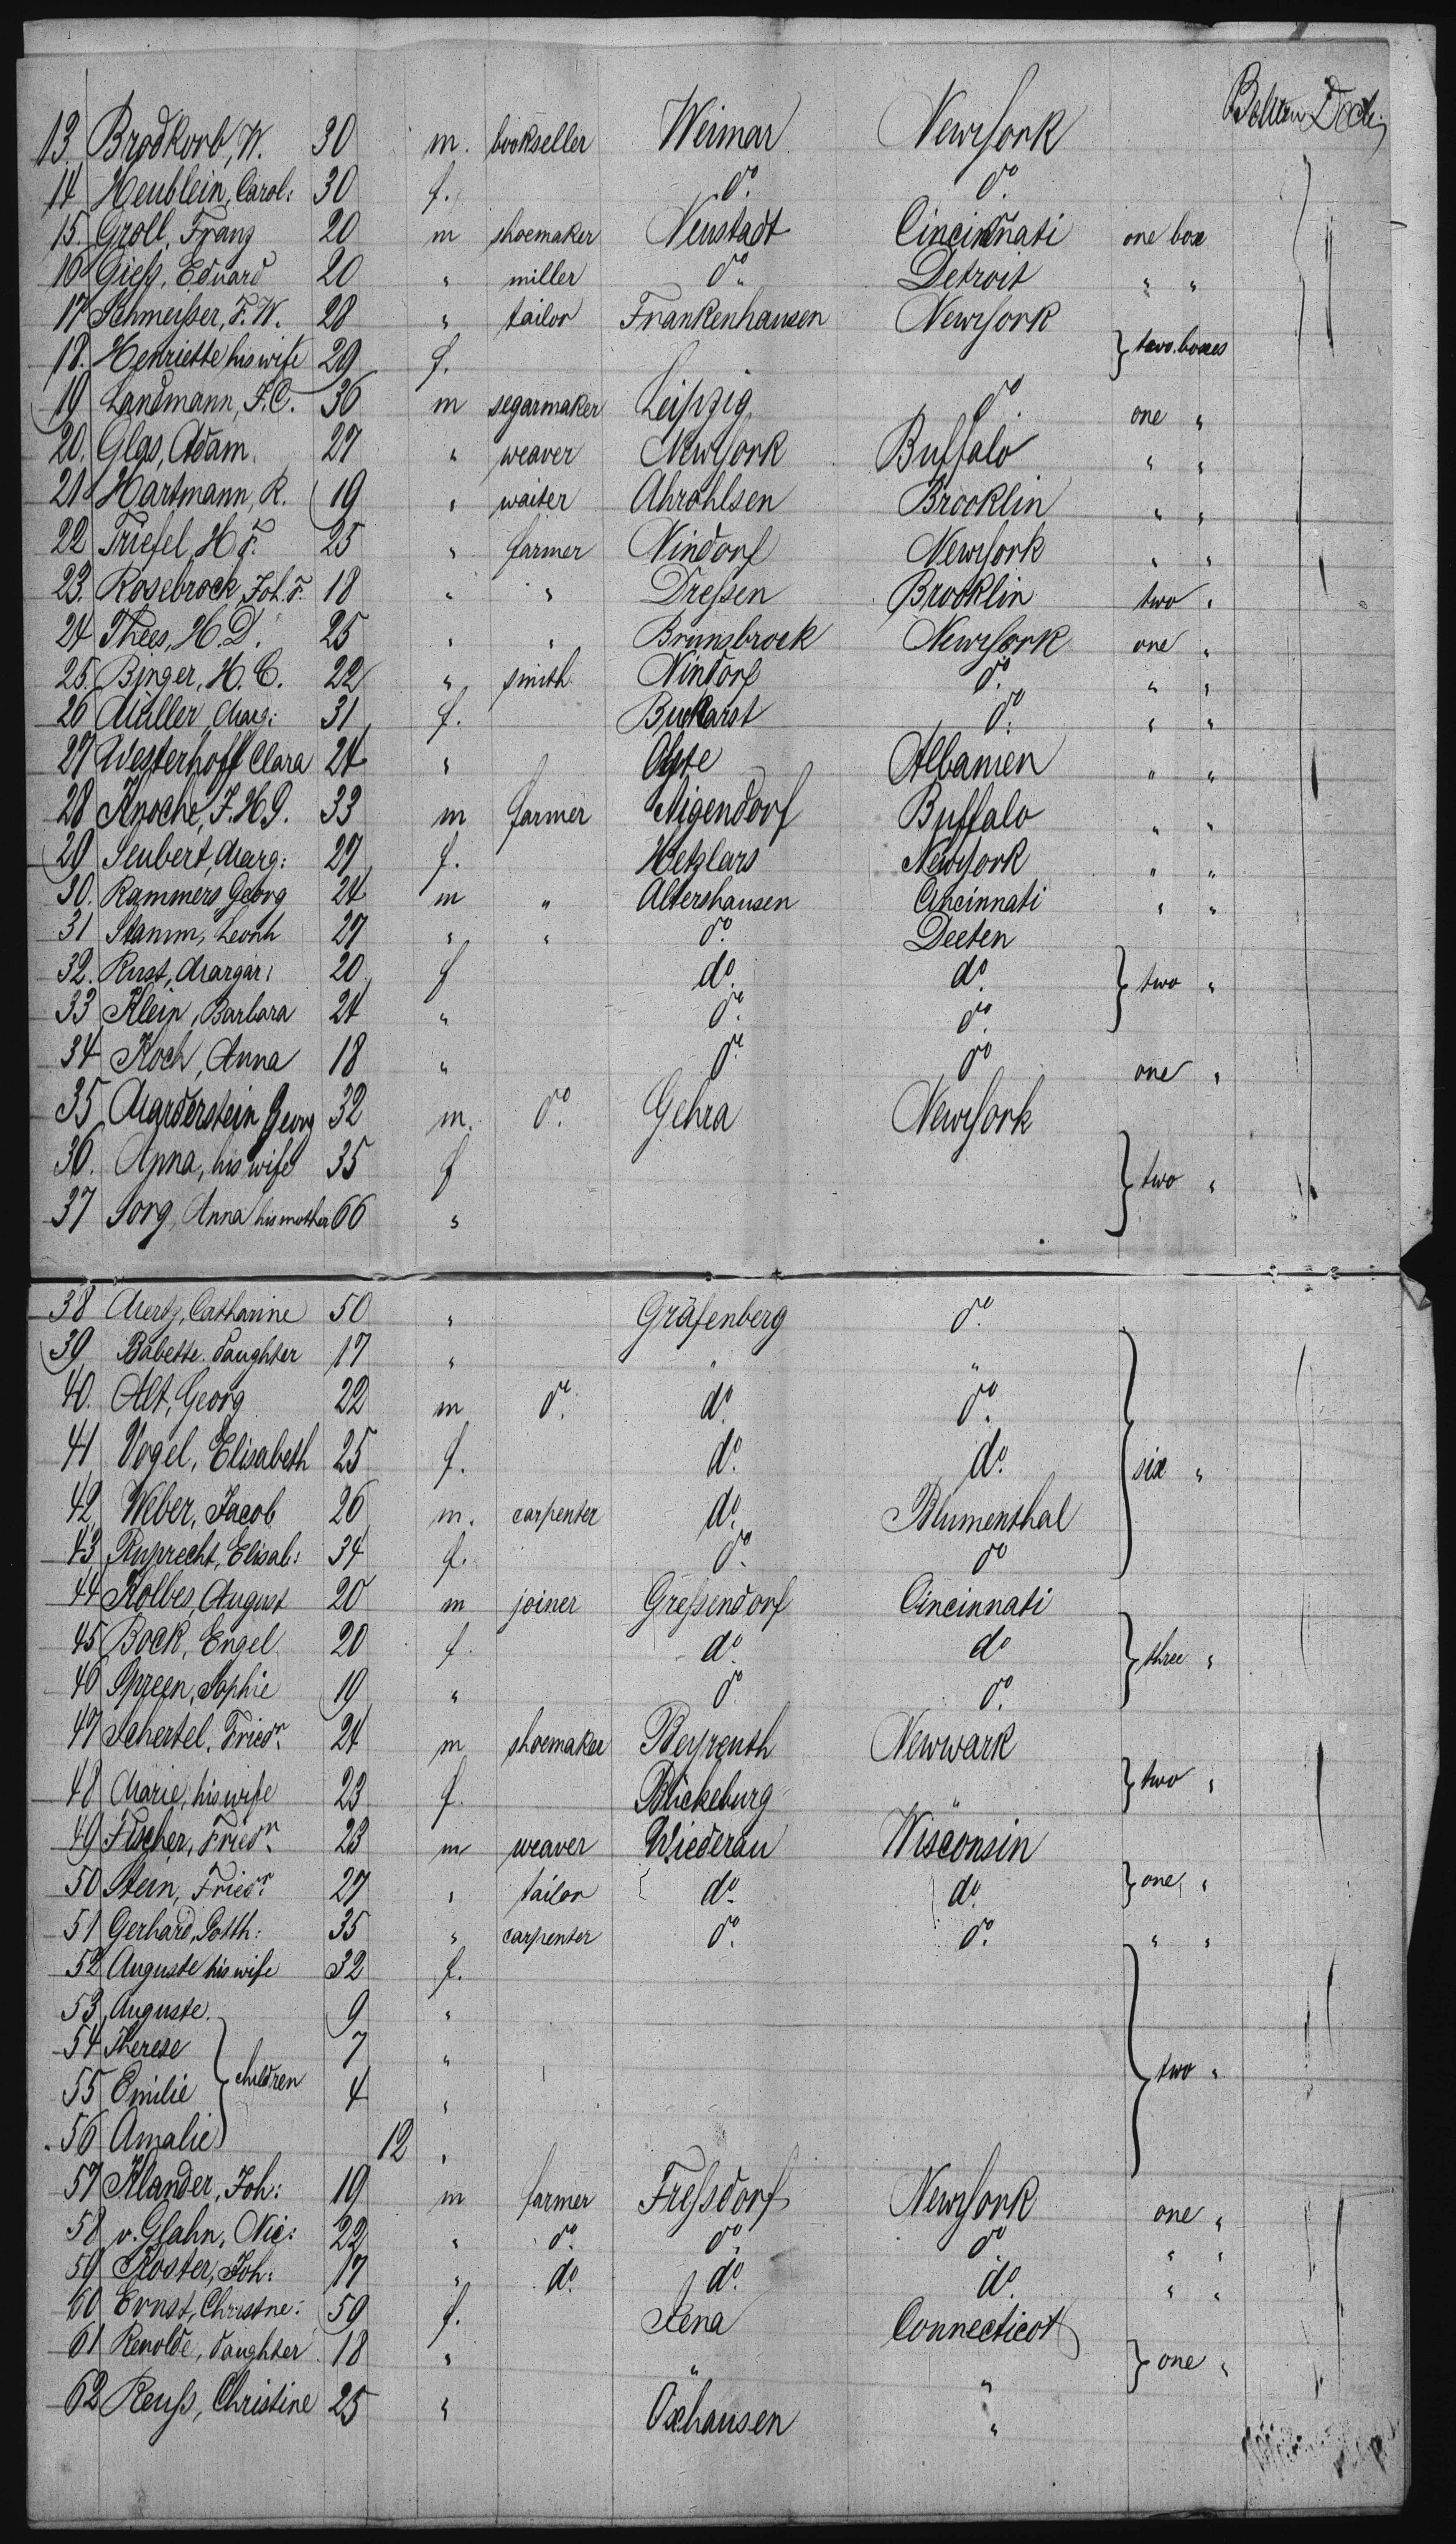 Between Decks
13. Brodkorb, W. 30 m. bookseller Weimar NewYork
14 Heublein, Carol: 30 f. do. do.
15. Groll, Franz 20 m shoemaker Neustadt Cincinnati one box
16 Gieß, Eduard 20 " miller do. Detroit " "
17 Schmeißer, F. W. 28 " tailor Frankenhausen NewYork
18. Henriette his wife 29 f. } two boxes
19 Landmann, F. C. 36 m segarmaker Leipzig do. one "
20. Glas, Adam. 27 " weaver NewYork Buffalo " "
21 Hartmann, R. 19 " waiter Ahrohlsen Brooklin " "
22 Triefel, H. F. 25 " farmer Nindorf NewYork " "
23. Rosebrock, Joh. F. 18 " " Dreßen Brooklin two "
24 Thees, H. D. 25 " " Brunsbrock NewYork one "
25. Binger, H. C. 22 " smith Nindorf do. " "
26 Müller, Marg: 31 f. Buckarst do. " "
27 Westerhoff Clara 24 " Albanien " "
28 Knoche, J. H. G. 33 m farmer Aigendorf Buffalo " "
29 Seubert, Marg: 27 f. Hetzlars NewYork " "
30. Rammers Georg 24 m " Altershausen Cincinnati " "
31 Stamm, Leonh 27 " " do. Deeten
32. Rust, Margar: 20 f do. do. } two "
33 Klein, Barbara 24 " do. do.
34 Koch, Anna 18 " do. do one "
35 Marderstein Georg 32 m. do. Gehra NewYork
36. Anna, his wife 35 f } two "
37 Sorg, Anna his mother 66 "
38 Mertz, Catharine 50 " Gräfenberg do.
39 Babette. daughter 17 " " "
40. Alt, Georg 22 m do. do. do.
41 Vogel, Elisabeth 25 f. do. do. } six "
42 Weber, Jacob 26 m. carpenter do. Blumenthal
43 Ruprecht, Elisab: 34 f. do. do
44 Kolbes, August 20 m joiner Greßendorf Cincinnati
45 Bock, Engel 20 f. do. do } three "
46 Spreen, Sophie 19 " do do.
47 Schertel, Friedr. 24 m shoemaker Beyreuth Newwark
48 Marie, his wife 23 f. Bückeburg " } two "
49 Fischer, Friedr. 23 m weaver Wiederau Wisconsin
50 Stein, Friedr. 27 " tailor do. do. } one "
51 Gerhard, Gotth: 35 " carpenter do. do. " "
52 Auguste his wife 32 f.
53 Auguste. 9 "
54 Therese 7 "
55 Emilie } children 4 " } two "
56 Amalie 12 "
57 Klander, Joh: 19 m farmer Freßdorf NewYork one "
58 v. Glahn, Nic: 22 " do. do. do " "
59 Koster, Joh: 17 " do. do. do. " "
60 Ernst, Christne: 59 f. Jena Connecticot
61 Renolde, daughter 18 " " " } one "
62 Reuß, Christine 25 " Oxhausen "